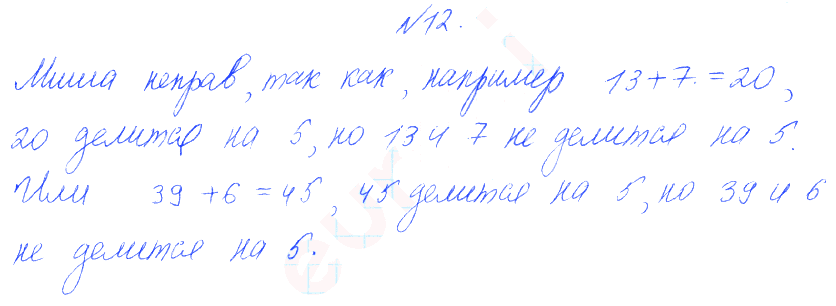 №12.
Миша неправ, так как, например 13+7=20,
20 делится на 5, но 13 и 7 не делится на 5.
Или 39+6=45, 45 делится на 5, но 39 и 6
не делится на 5.